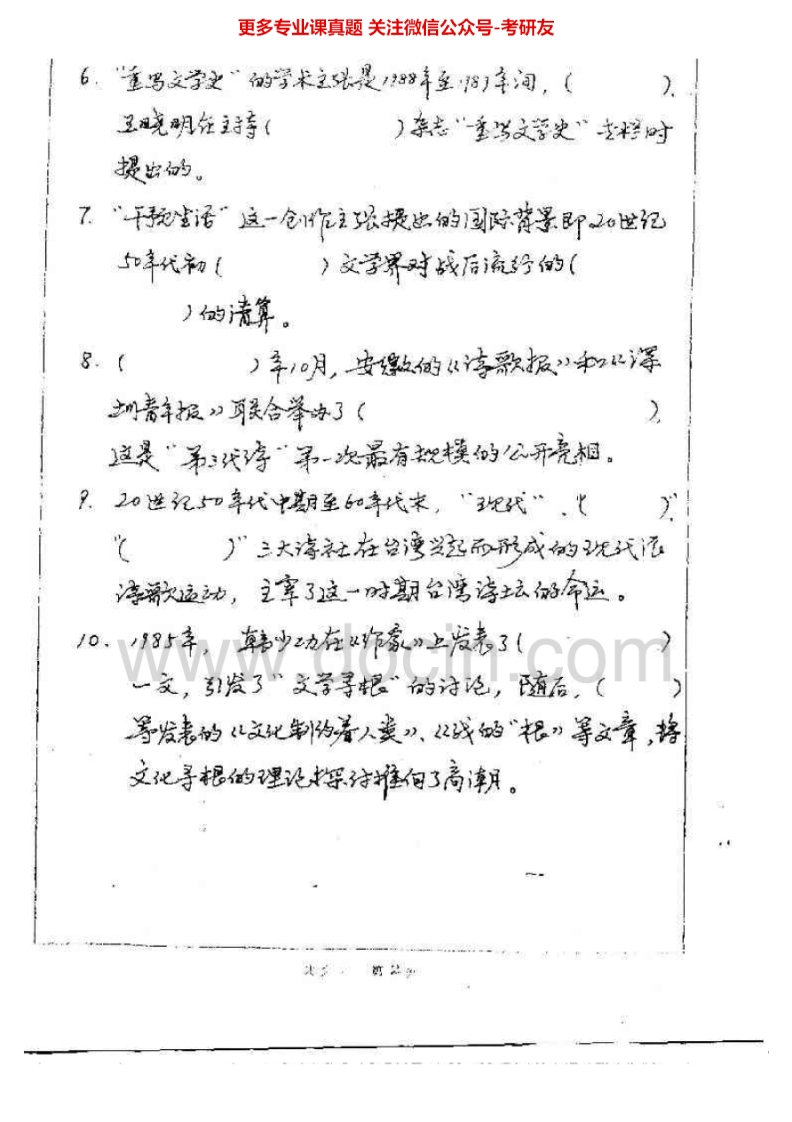 更多专业课真题 关注微信公众号-考研友
6. “重写文学史”的学术主张是1988年至1989年间，(    )、
王晓明在主持(    )杂志“重写文学史”专栏时
提出的。
7. “干预生活”这一创作主张提出的国际背景即20世纪
50年代初(    )文学界对战后流行的(
)的清算。
8. (    )年10月，安徽的《诗歌报》和《深
圳青年报》联合举办了(    )，
这是“第三代诗”第一次最有规模的公开亮相。
9. 20世纪50年代中期至60年代末，“现代”、“(    )”
“(    )”三大诗社在台湾兴起而形成的现代派
诗歌运动，主宰了这一时期台湾诗坛的命运。
10. 1985年，韩少功在《作家》上发表了(    )
一文，引发了“文学寻根”的讨论，随后，(    )
等发表的《文化制约着人类》、《我的“根》等文章，将
文化寻根的理论探讨推向了高潮。
www.docin.com
第2页